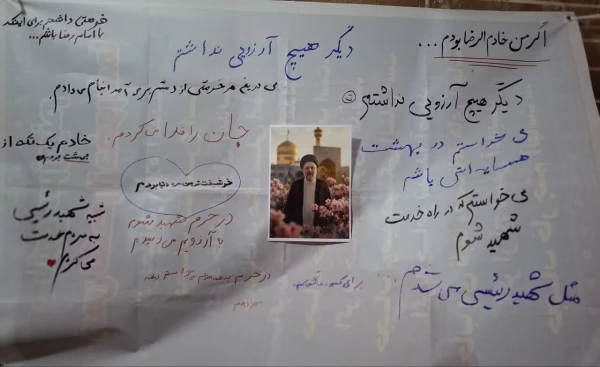 اگر من خادم الرضا بودم ...
دیگر هیچ آرزویی نداشتم
می خواستم در بهشت
همسایه اش باشم
می خواستم که در راه خدمت
شهید شوم
مثل شهید رئیسی می شدم ...
دیگر هیچ آرزویی نداشتم
بی دریغ هر خدمتی از دستم بر می آمد انجام می دادم.
جان را فدا می کردم.
خوشبخت ترین دنیا بودم
در حرم شهید شوم
به آرزویم می رسیدم
در حرم
فرصتی داشتم برای اینکه
با امام رضا باشم
خادم یک تکه از
بهشت بودم
شبیه شهید رئیسی
به مردم خدمت
می کردم